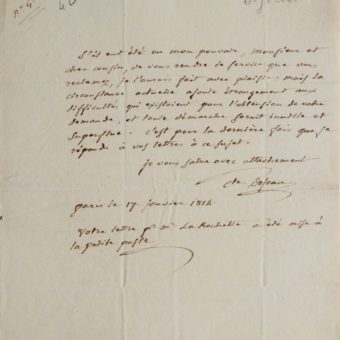 S'il eut été en mon pouvoir, monsieur et
cher cousin, de vous rendre le service que vous
reclamez, je l'aurois fait avec plaisir; mais la
circonstance actuelle ajoute étrangement aux
difficultés qui existoient pour l'obtension de votre
demande, et toute démarche seroit inutile et
superflue. c'est pour la dernière fois que je
réponds à vos lettres à ce sujet.
je vous salue avec attachement
Cte Dejean
paris le 17 janvier 1814
Votre lettre pr mr La Rochelle a été mise à
la petite poste